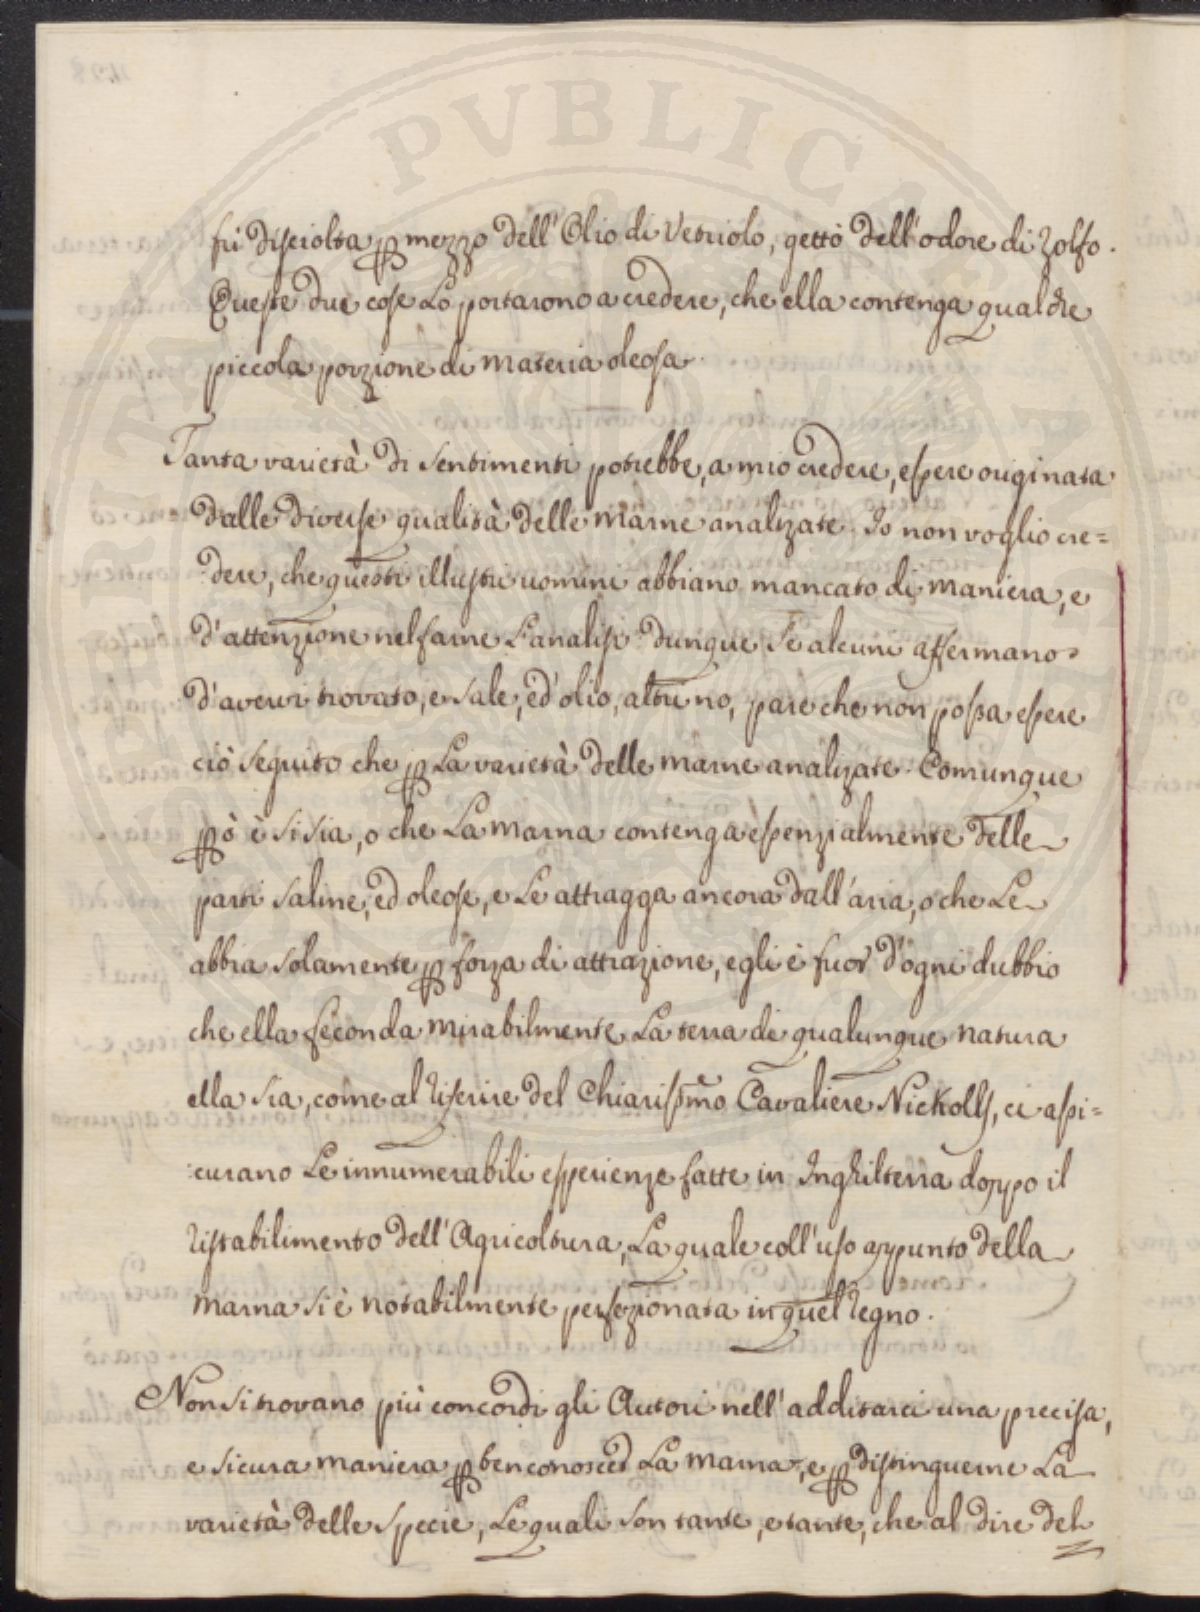 fù disciolta p mezzo dell'Olio di Vetriolo, gettò dell'odore di Zolfo.
Queste due cose Lo portarono a credere, che ella contenga qualche
piccola porzione di materia oleosa.
Tanta varietà di sentimenti potrebbe, a mio credere, essere originata
dalle diverse qualità delle marne analizate. Io non voglio cre=
dere, che questi illustri uomini abbiano mancato di maniera, e
d'attenzione nel farne L'analisi: dunque se alcuni affermano
d'avervi trovato, e sale, ed'olio, altri no, pare che non possa essere
ciò seguito che p La varietà delle marne analizate. Comunque
pò è si sia, o che La marna contenga essenzialmente delle
parti saline, ed oleose, e Le attragga ancora dall'aria, o che Le
abbia solamente p forza di attrazione, egli è fuor d'ogni dubbio
che ella feconda mirabilmente La terra di qualunque natura
ella sia, come al riferire del Chiarissmo Cavaliere Nickolls, ci assi=
curano Le innumerabili esperienze fatte in Inghilterra doppo il
ristabilimento dell'Agricoltura, La quale coll'uso appunto della
marna si è notabilmente perfezionata in quel regno.
Non si trovano più concordi gli Autori nell'additarci una precisa,
e sicura maniera p ben conoscer La marna, e p distinguerne La
varietà delle specie, Le quali son tante, e tante, che al dire del
PVBLICA